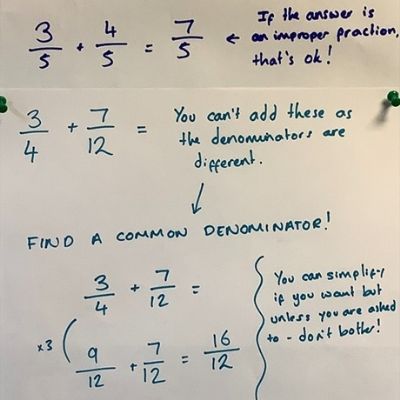 3/5 + 4/5 = 7/5 ← If the answer is
an improper fraction,
that's ok!
3/4 + 7/12 = You can't add these as
the denominators are
different.
↓
FIND A COMMON DENOMINATOR!
3/4 + 7/12 =
×3 ( 9/12 + 7/12 = 16/12
You can simplify
if you want but
unless you are asked
to - don't bother!